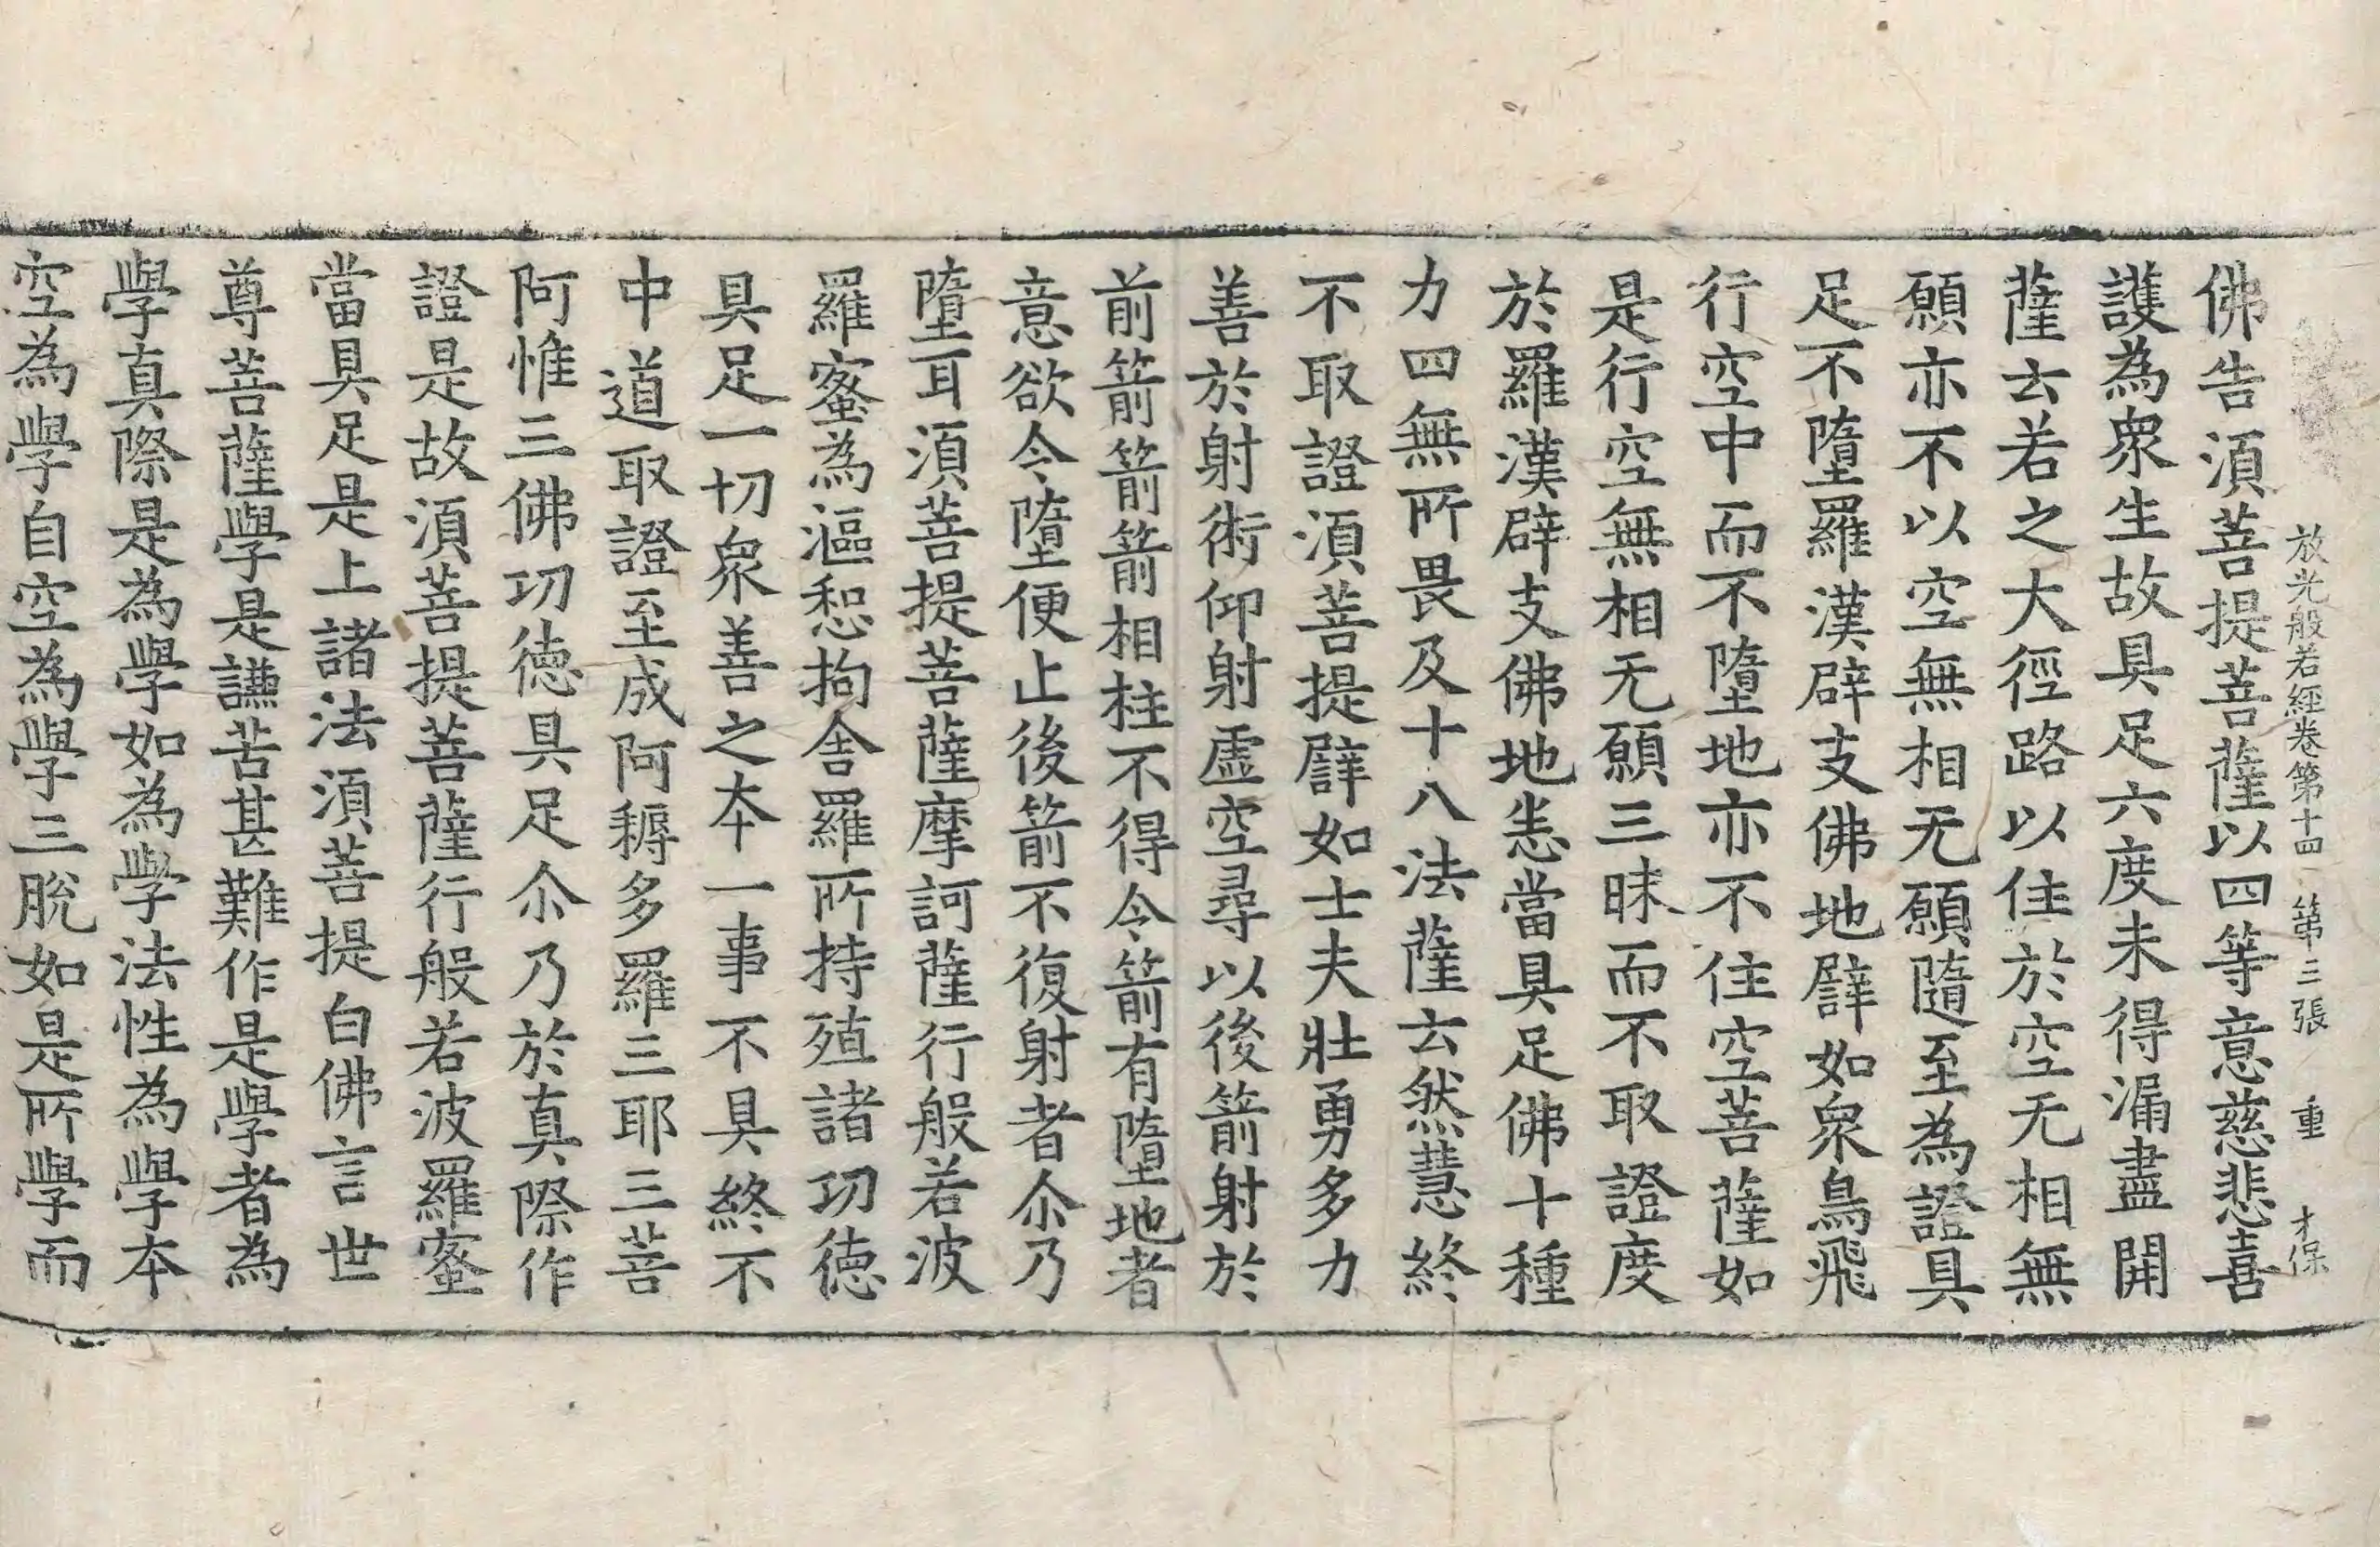 放光般若經卷第十四 第三張 重 才保
佛告須菩提菩薩以四等意慈悲喜
護為衆生故具足六度未得漏盡開
薩云若之大徑路以住於空无相無
願亦不以空無相无願隨至為證具
足不墮羅漢辟支佛地譬如衆鳥飛
行空中而不墮地亦不住空菩薩如
是行空無相无願三昧而不取證度
於羅漢辟支佛地恚當具足佛十種
力四無所畏及十八法薩云然慧終
不取證須菩提譬如士夫壯勇多力
善於射術仰射虛空尋以後箭射於
前箭箭箭相拄不得令箭有墮地者
意欲令墮便止後箭不復射者尒乃
墮耳須菩提菩薩摩訶薩行般若波
羅蜜為漚惒拘舍羅所持殖諸功德
具足一切衆善之本一事不具終不
中道取證至成阿耨多羅三耶三菩
阿惟三佛功德具足尒乃於真際作
證是故須菩提菩薩行般若波羅蜜
當具足是上諸法須菩提白佛言世
尊菩薩學是謙苦甚難作是學者為
學真際是為學如為學法性為學本
空為學自空為學三脫如是所學而